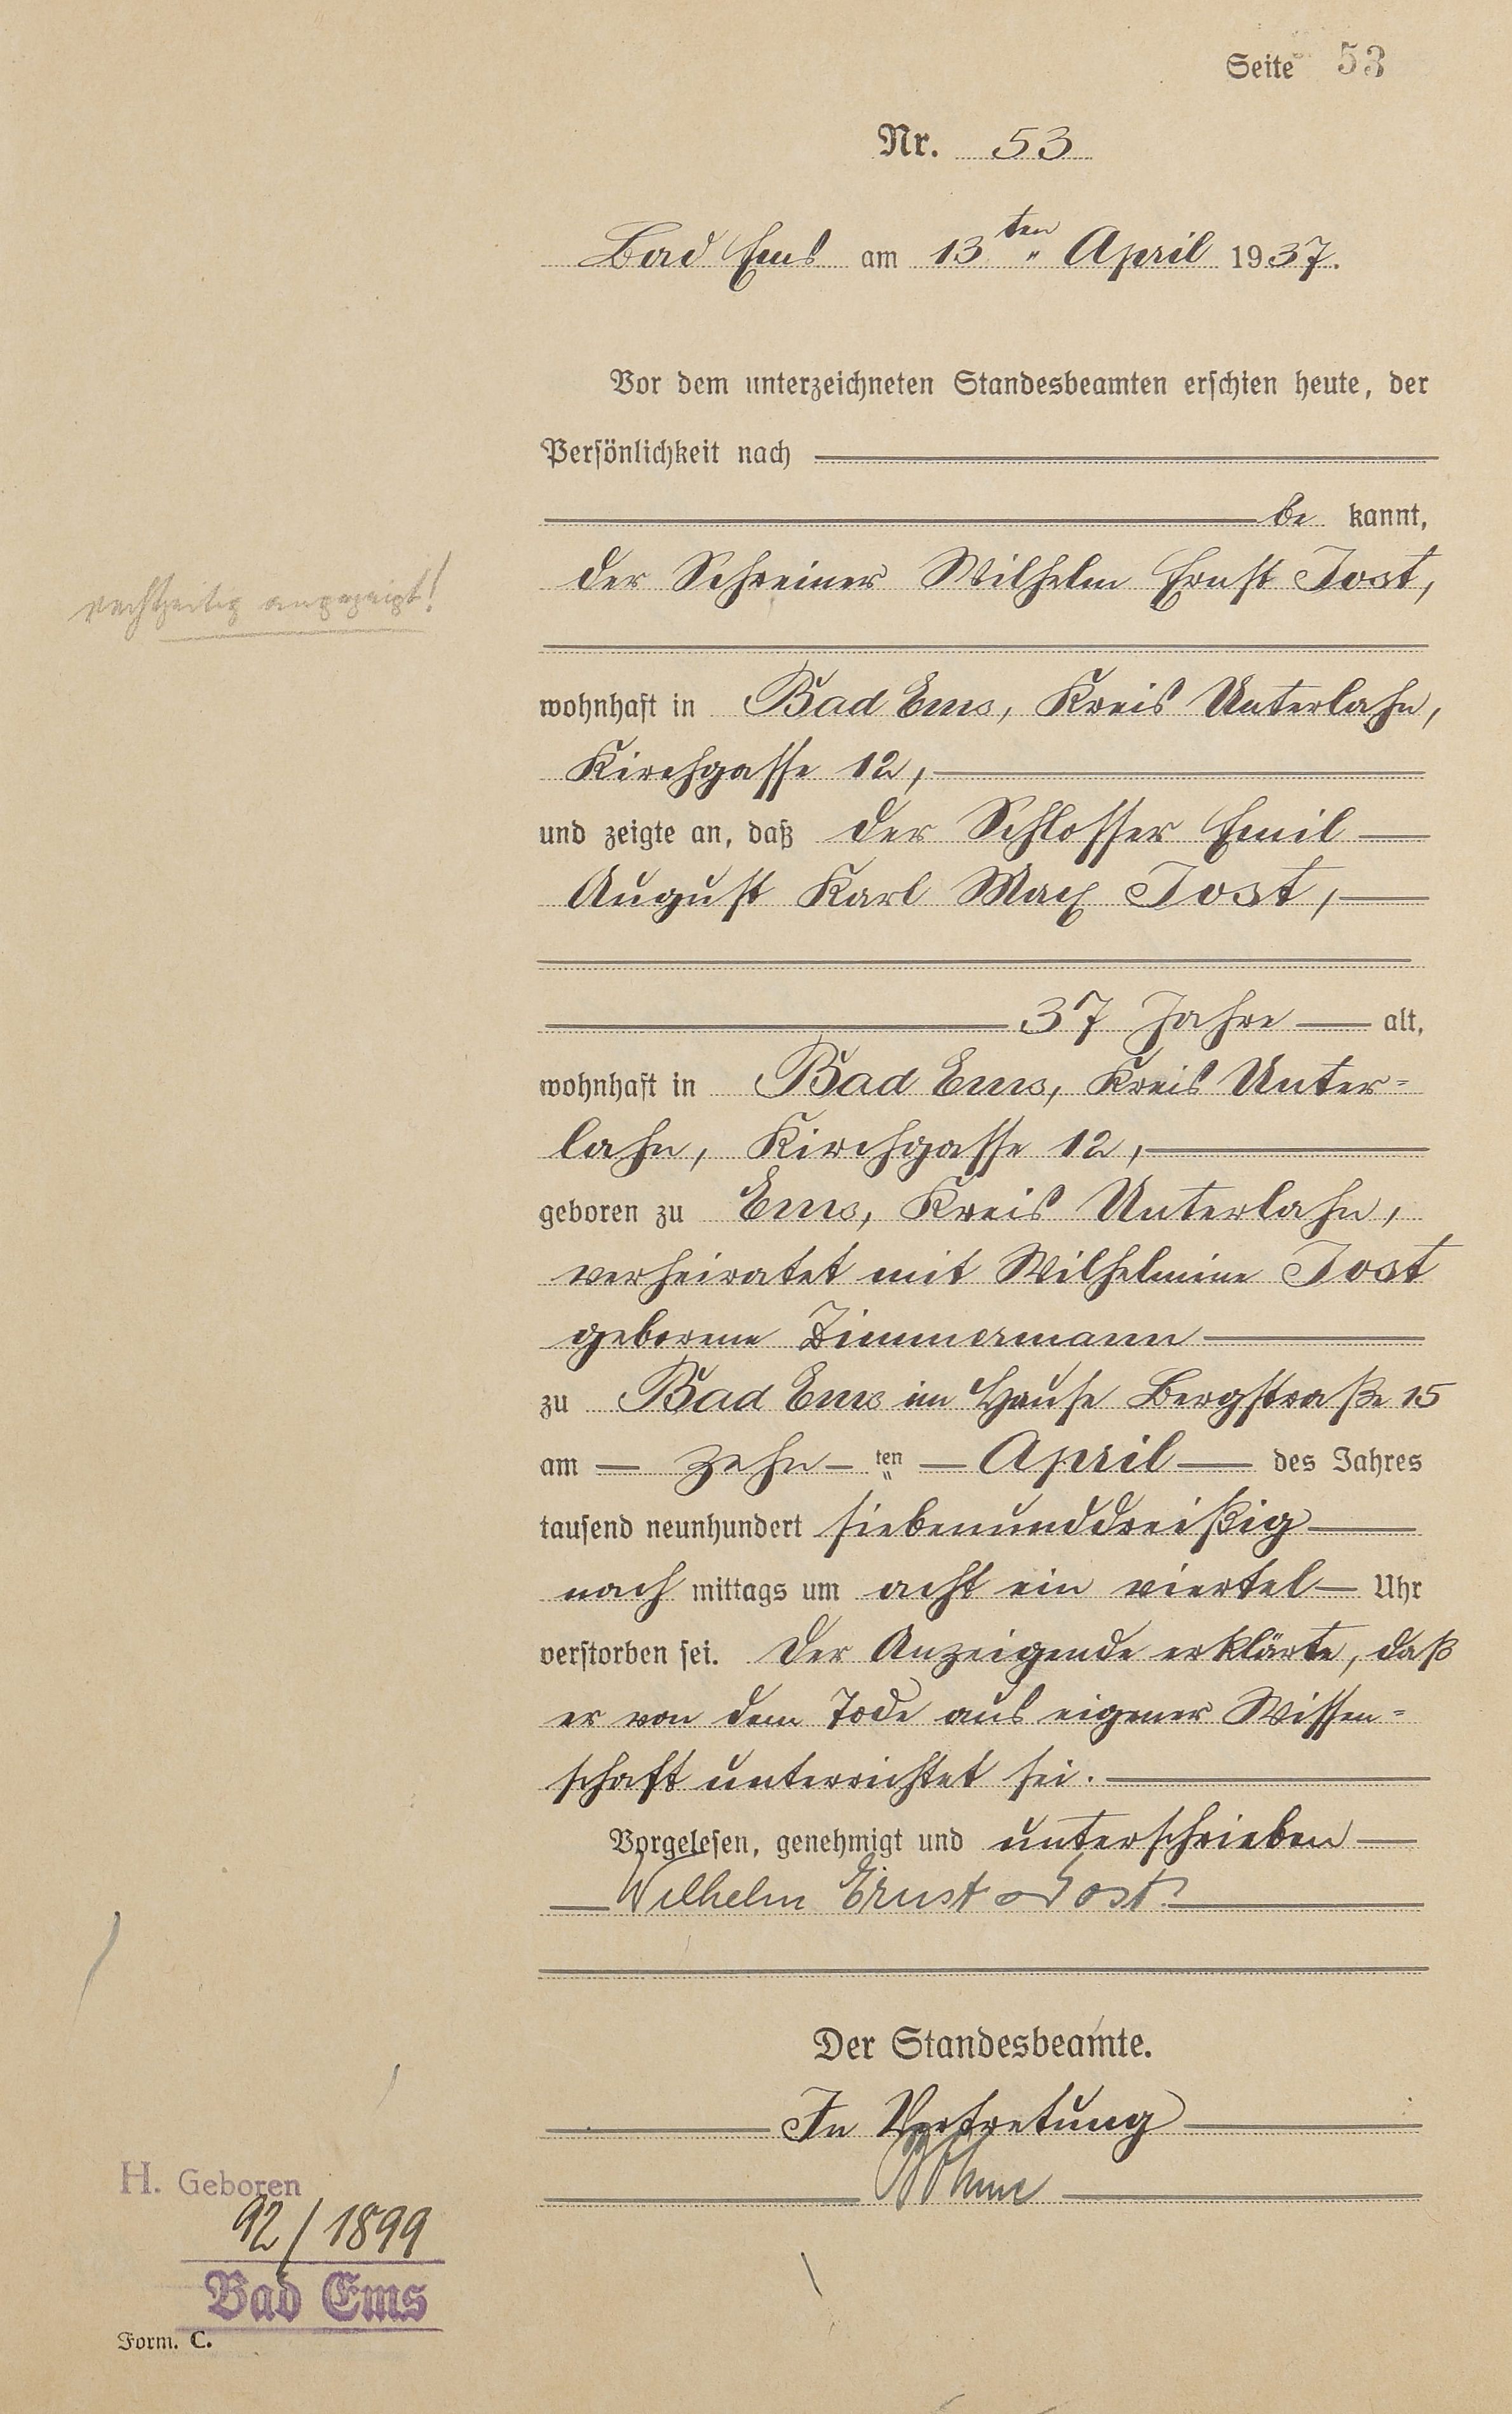 Seite 53
Nr. 53
Bad Ems am 13ten " April 1937.
Vor dem unterzeichneten Standesbeamten erschien heute, der
Persönlichkeit nach
be kannt,
der Schreiner Wilhelm Ernst Jost,
rechtzeitig angezeigt!
wohnhaft in Bad Ems, Kreis Unterlahn,
Kirchgasse 12,
und zeigte an, daß der Schlosser Emil
August Karl Max Jost,
37 Jahre alt,
wohnhaft in Bad Ems, Kreis Unter=
lahn, Kirchgasse 12,
geboren zu Ems, Kreis Unterlahn,
verheiratet mit Wilhelmine Jost
geborene Zimmermann
zu Bad Ems im Hause Bergstraße 15
am zehn ten April des Jahres
tausend neunhundert siebenunddreißig
nach mittags um acht ein viertel Uhr
verstorben sei. Der Anzeigende erklärte, daß
er von dem Tode aus eigener Wissen=
schaft unterrichtet sei.
Vorgelesen, genehmigt und unterschrieben
Wilhelm Ernst Jost.
Der Standesbeamte.
In Vertretung
H. Geboren
92/1899
Bad Ems
Form. C.